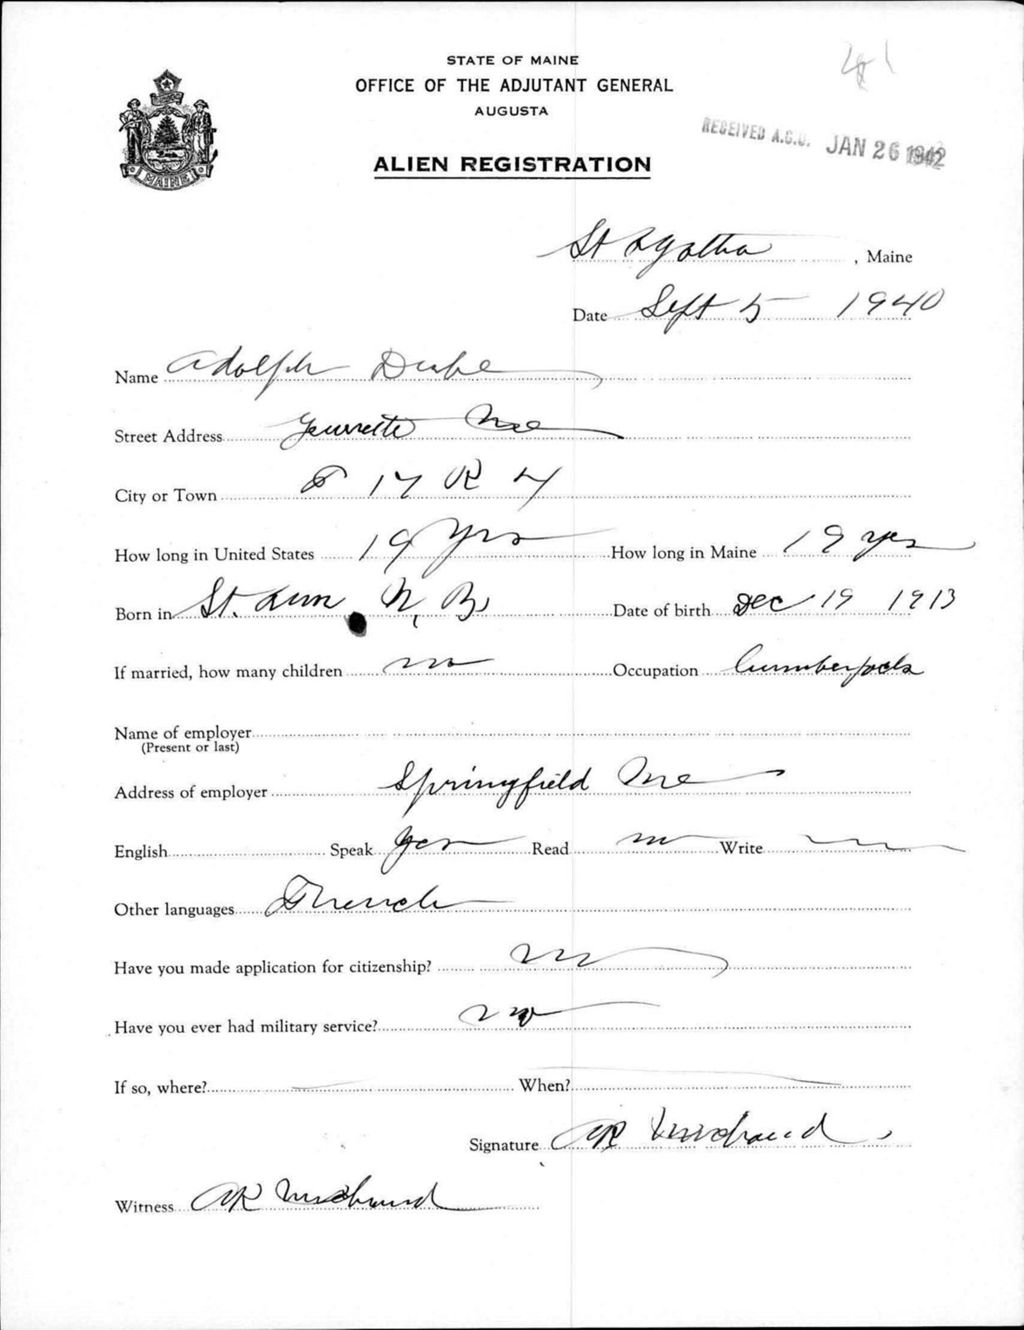 STATE OF MAINE
OFFICE OF THE ADJUTANT GENERAL
AUGUSTA
RECEIVED A.G.O. JAN 26 1942
MAINE
ALIEN REGISTRATION
St Agatha, Maine
Date Sept 5 1940
Name Adolph Dube
Street Address Me
City or Town T 17 R 4
How long in United States 19 yrs How long in Maine 19 yrs
Born in St. Ann, N, B, Date of birth Dec 19 1913
If married, how many children no Occupation
Name of employer
(Present or last)
Address of employer Springfield Me
English Speak yes Read no Write no
Other languages French
Have you made application for citizenship? no
Have you ever had military service? no
If so, where? When?
Signature AR Michaud
Witness AR Michaud